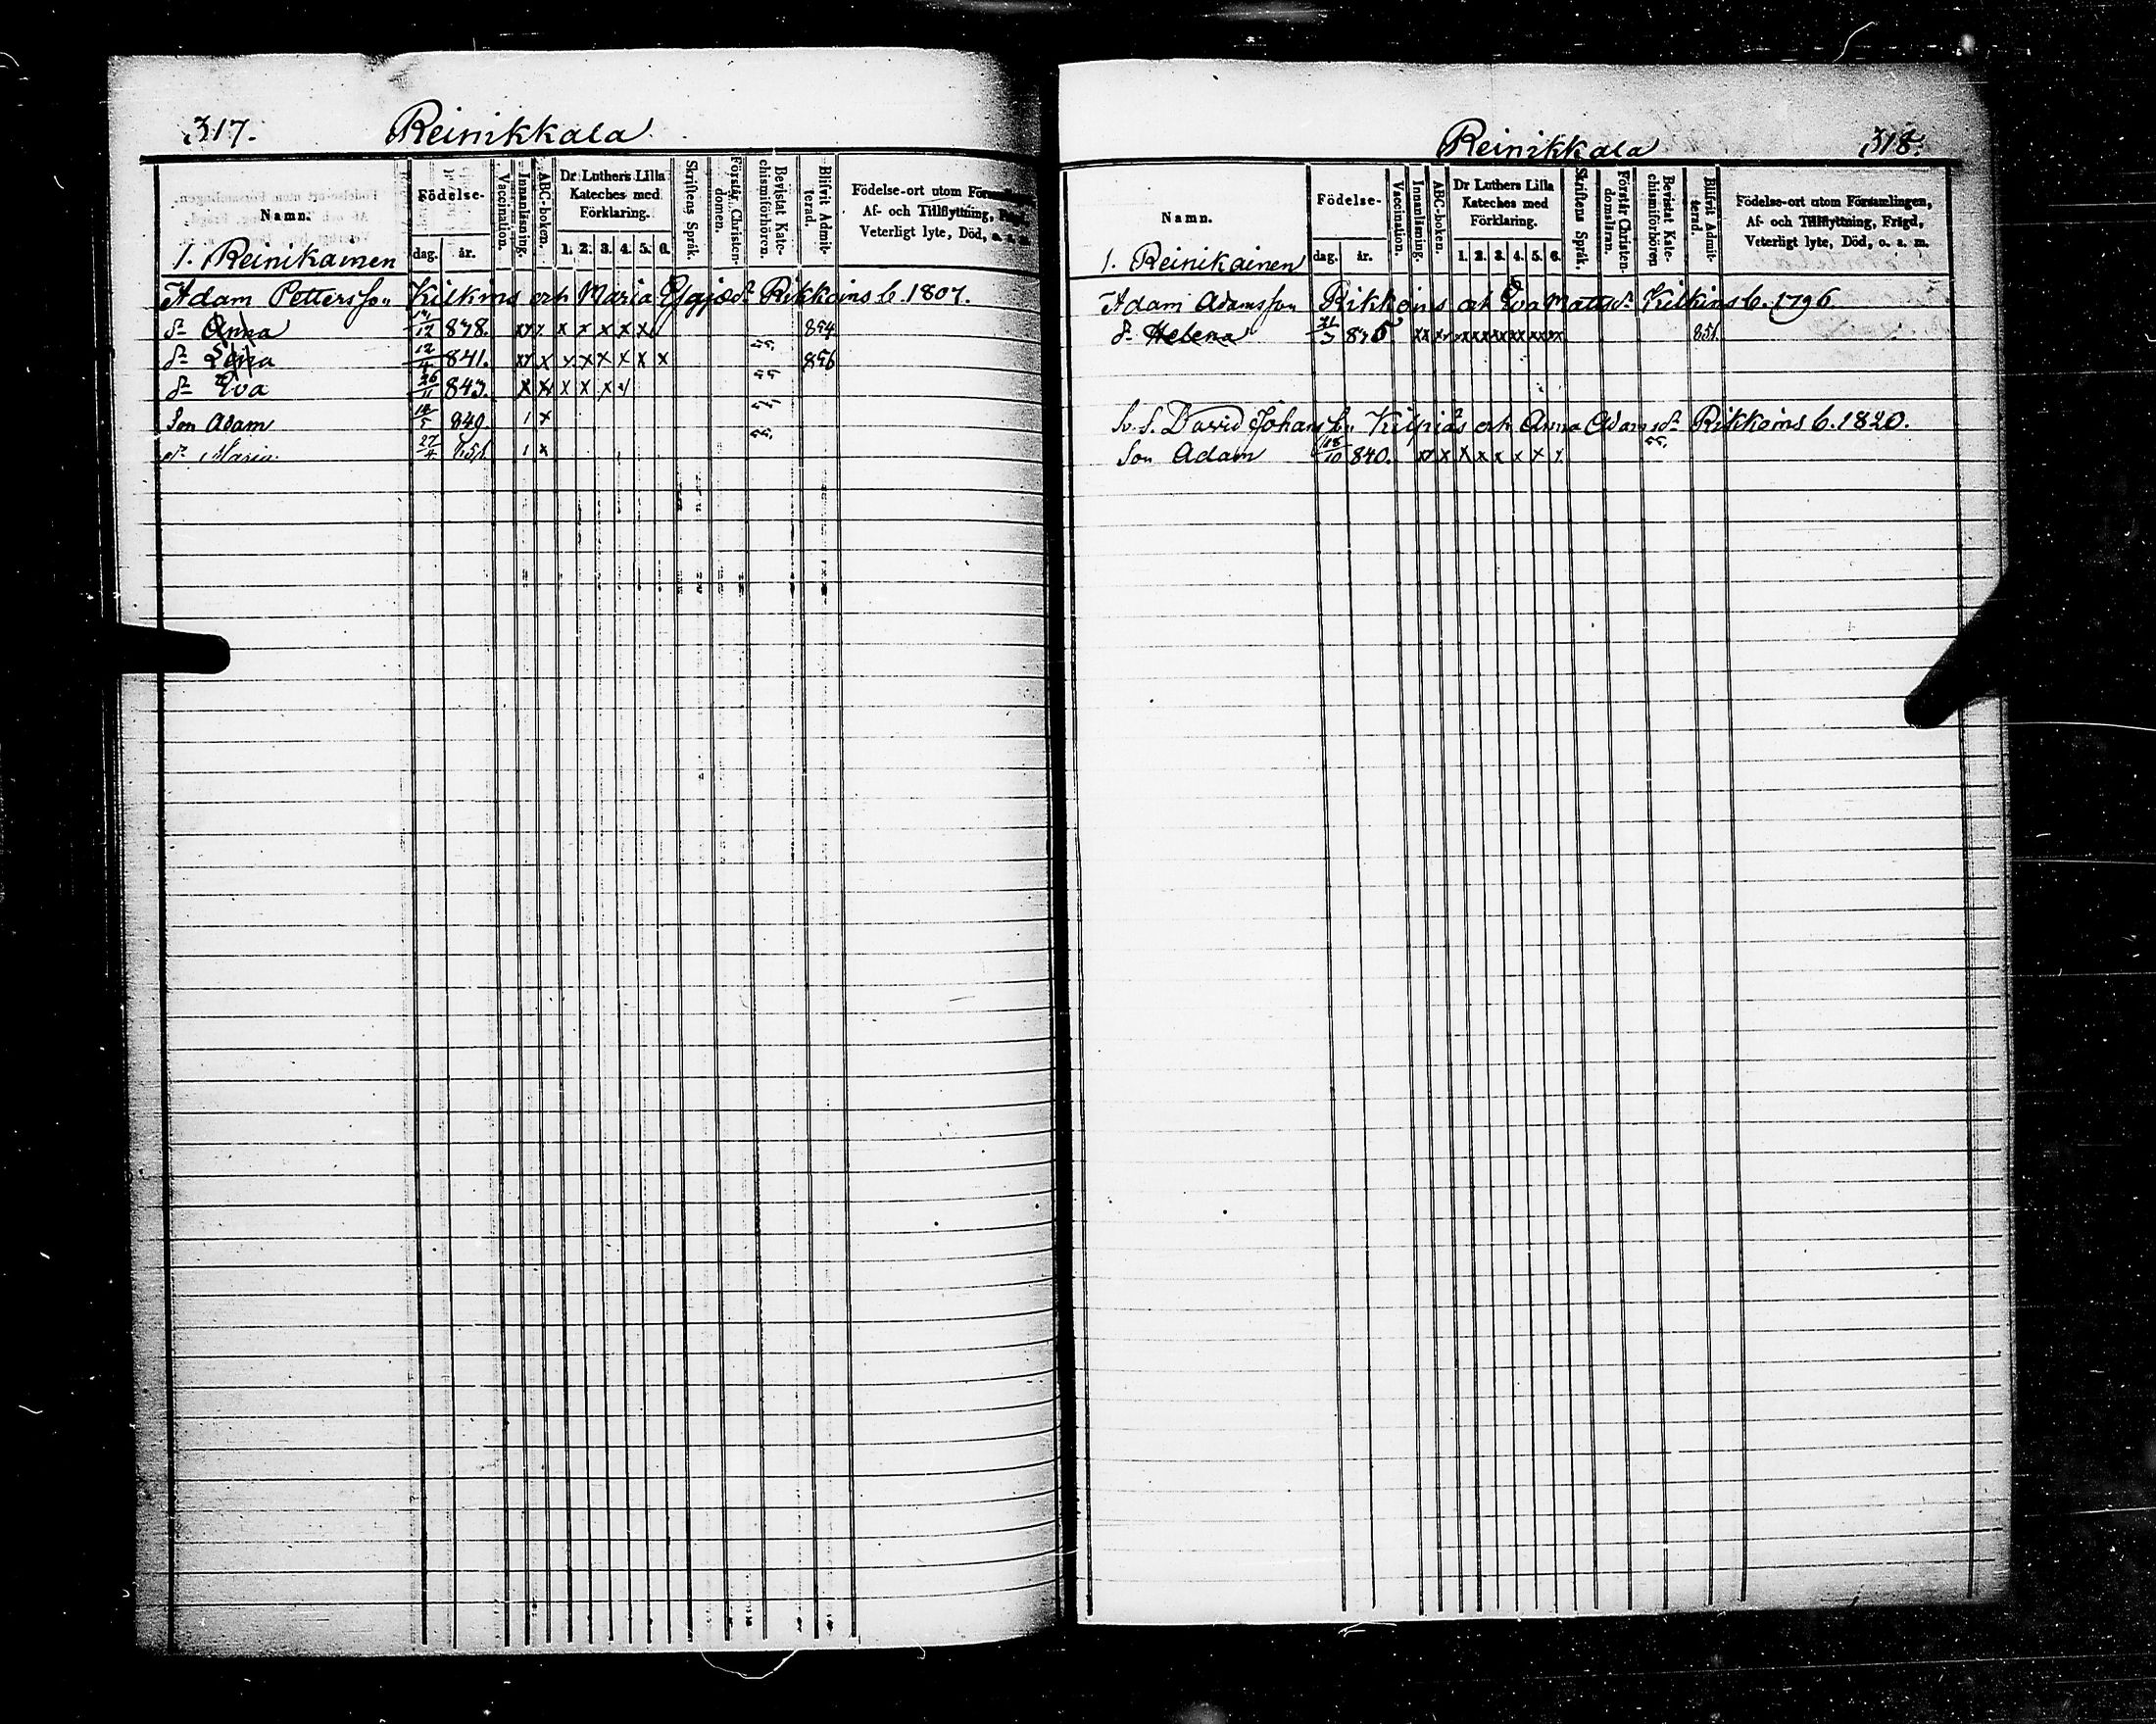 317. Reinikkala
Namn. Födelse- Vaccination. Innanläsning. ABC-boken. Dr Luthers Lilla Kateches med Förklaring. Skriftens Språk. Förstår Christendomen. Bevistat Katechismiförhören. Blifvit Admitterad. Födelse-ort utom
Af- och Tillflyttning,
Veterligt lyte, Död, o. a. m.
1. Reinikainen dag. år. 1. 2. 3. 4. 5. 6.
Adam Pettersson Kilkins och Maria Rikkoins b. 1807.
dr Anna 12 838. x x x x x 854
dr Lena 12/4 841. x x x x x x x 856
dr Eva 26/11 843. x x x x x
Son Adam 18/5 849. 1 x
dr Maria 27/4 1 x
Reinikkala 318.
Namn. Födelse- Vaccination. Innanläsning. ABC-boken. Dr Luthers Lilla Kateches med Förklaring. Skriftens Språk. Förstår Christendomsläran. Bevistat Katechismiförhören Blifvit Admitterad. Födelse-ort utom Församlingen,
Af- och Tillflyttning, Frägd,
Veterligt lyte, Död, o. a. m.
1. Reinikainen dag. år. 1. 2. 3. 4. 5. 6.
Adam Adamsson Rikkoins och Eva Mattsdr Kilkins b. 1796.
dr Helena 31/3 851
David Johansson Kilpiäs och Anna Adamsdr Rikkoins b. 1820.
Son Adam 18/10 840. x x x x x x x x